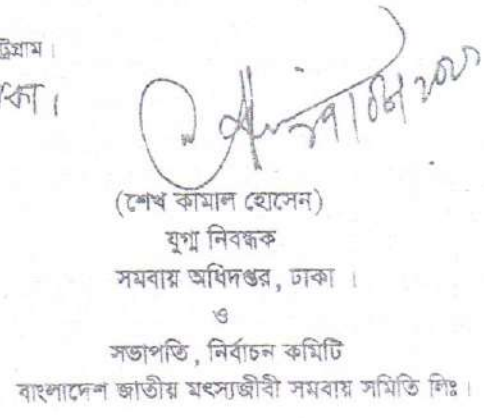 ট্টগ্রাম।
কা।
(শেখ কামাল হোসেন)
যুগ্ম নিবন্ধক
সমবায় অধিদপ্তর, ঢাকা ।
ও
সভাপতি, নির্বাচন কমিটি
বাংলাদেশ জাতীয় মৎস্যজীবী সমবায় সমিতি লিঃ।